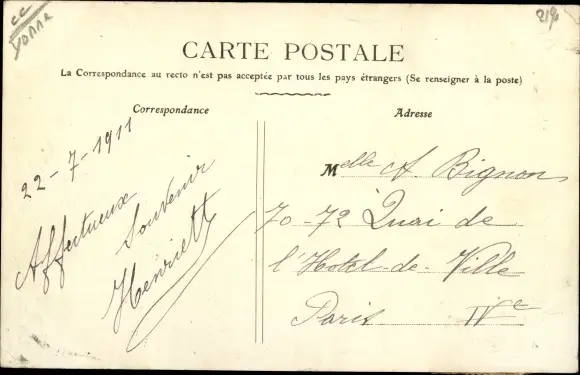 cc
YONNE
CARTE POSTALE
La Correspondance au recto n'est pas acceptée par tous les pays étrangers (Se renseigner à la poste)
Correspondance
22-7-1911
Affectueux
Souvenir
Henriett
Adresse
Melle A. Bignon
70-72 Quai de
l'Hotel-de-Ville
Paris IVe